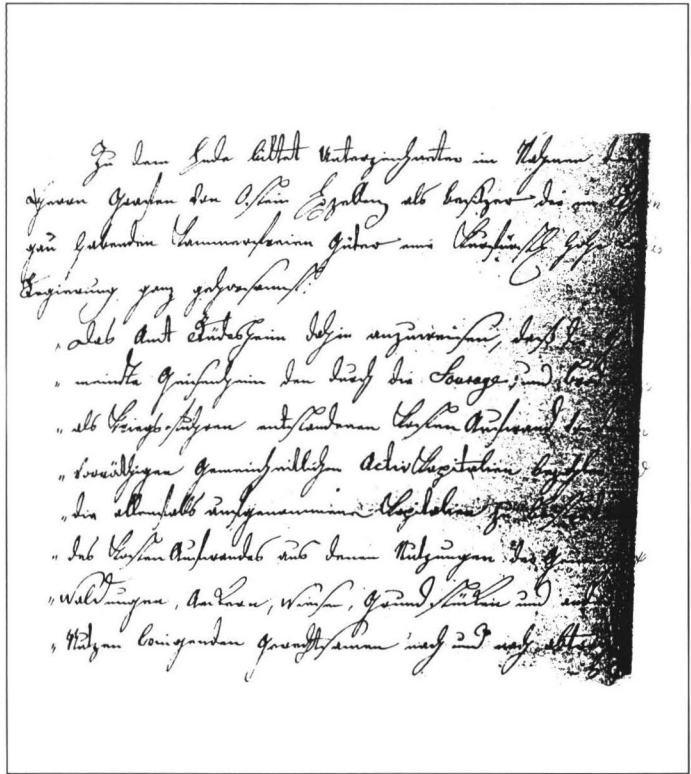 Zu dem Ende bittet Unterzeichneter im Nahmen des
Herrn Grafen von Ostein Exzellenz als besitzer der im
gau habenden Cammerfreien Güter eine Kurfürstl. Hohe
Regierung ganz gehorsamst:
„Das Amt Rüdesheim dahin anzuweisen, daß die Ge
„meinde Geisenheim den durch die Fourage, und
„als Kriegs-fuhren entstandenen Kosten Aufwand
„vorräthigen Gemeinheitlichen Activ Capitalien bezahlen
„die allenfalls aufgenommene Capitalien zu
„des Kosten Aufwandes aus denen Nutzungen der
„Waldungen, Äckern, Wiesen, Grund stücken und
„Nutzen bringenden Gerechtsamen nach und nach